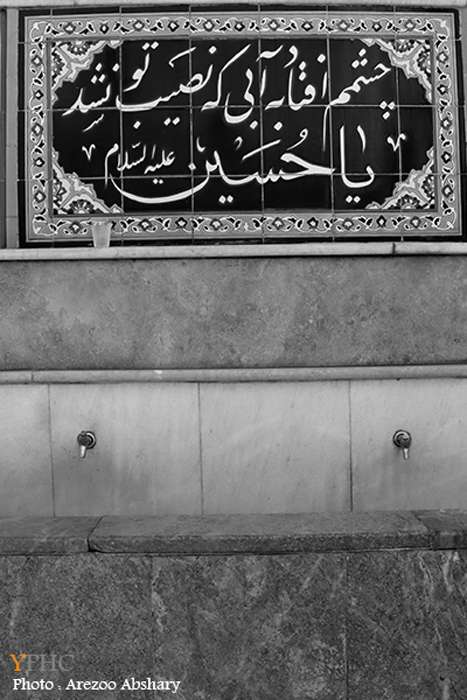 چشمم افتاد به آبی که نصیب تو نشد
یا حسین علیه السلام
YPHC
Photo : Arezoo Abshary